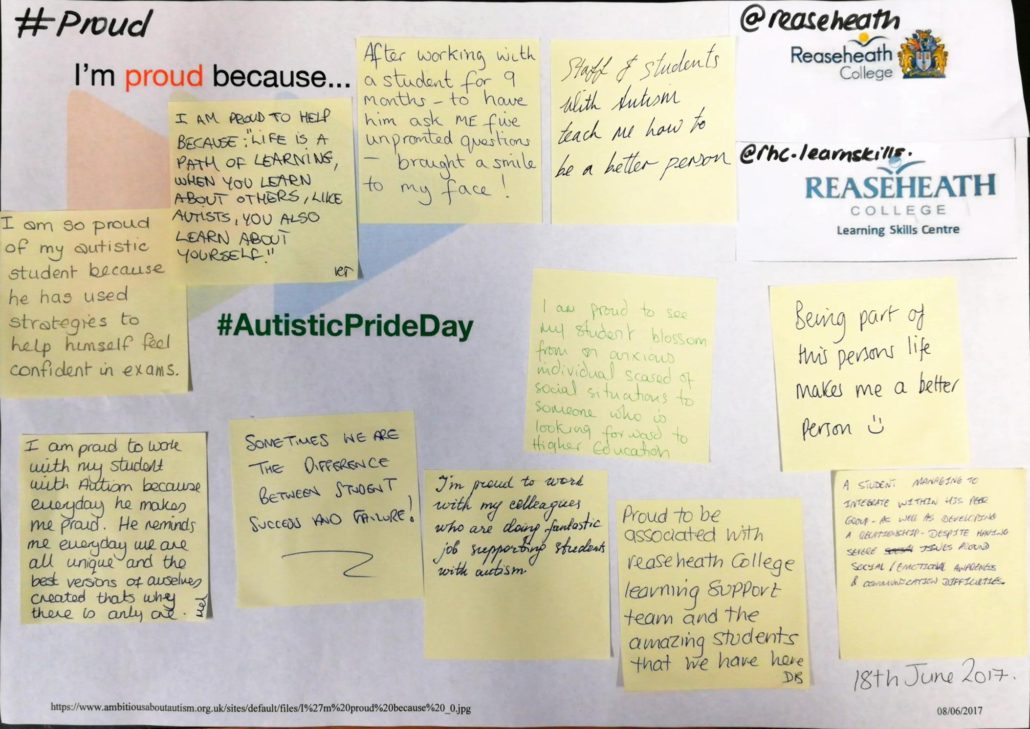 #Proud
I'm proud because...
@reaseheath
Reaseheath
College
@rhc-learnskills.
REASEHEATH
COLLEGE
Learning Skills Centre
After working with
a student for 9
months - to have
him ask ME five
unpromted questions
- brought a smile
to my face!
Staff & students
With Autism
teach me how to
be a better person
I AM PROUD TO HELP
BECAUSE: "LIFE IS A
PATH OF LEARNING,
WHEN YOU LEARN
ABOUT OTHERS, LIKE
AUTISTS, YOU ALSO
LEARN ABOUT
YOURSELF."
I am so proud
of my autistic
student because
he has used
strategies to
help himself feel
confident in exams.
#AutisticPrideDay
I am proud to see
my student blossom
from an anxious
individual scared of
social situations to
someone who is
looking forward to
Higher Education
Being part of
this persons life
makes me a better
person
I am proud to work
with my student
with Autism because
everyday he makes
me proud. He reminds
me everyday we are
all unique and the
best versions of ourselves
created thats why
there is only one. Mel
SOMETIMES WE ARE
THE DIFFERENCE
BETWEEN STUDENT
SUCCESS AND FAILURE!
I'm proud to work
with my colleagues
who are doing fantastic
job supporting students
with autism
Proud to be
associated with
reaseheath College
learning support
team and the
amazing students
that we have here
DB
A STUDENT MANAGING TO
INTEGRATE WITHIN HIS PEER
GROUP - AS WELL AS DEVELOPING
A RELATIONSHIP - DESPITE HAVING
SEVERE ISSUES AROUND
SOCIAL / EMOTIONAL AWARENESS
& COMMUNICATION DIFFICULTIES.
18th June 2017.
https://www.ambitiousaboutautism.org.uk/sites/default/files/I%27m%20proud%20because%20_0.jpg
08/06/2017